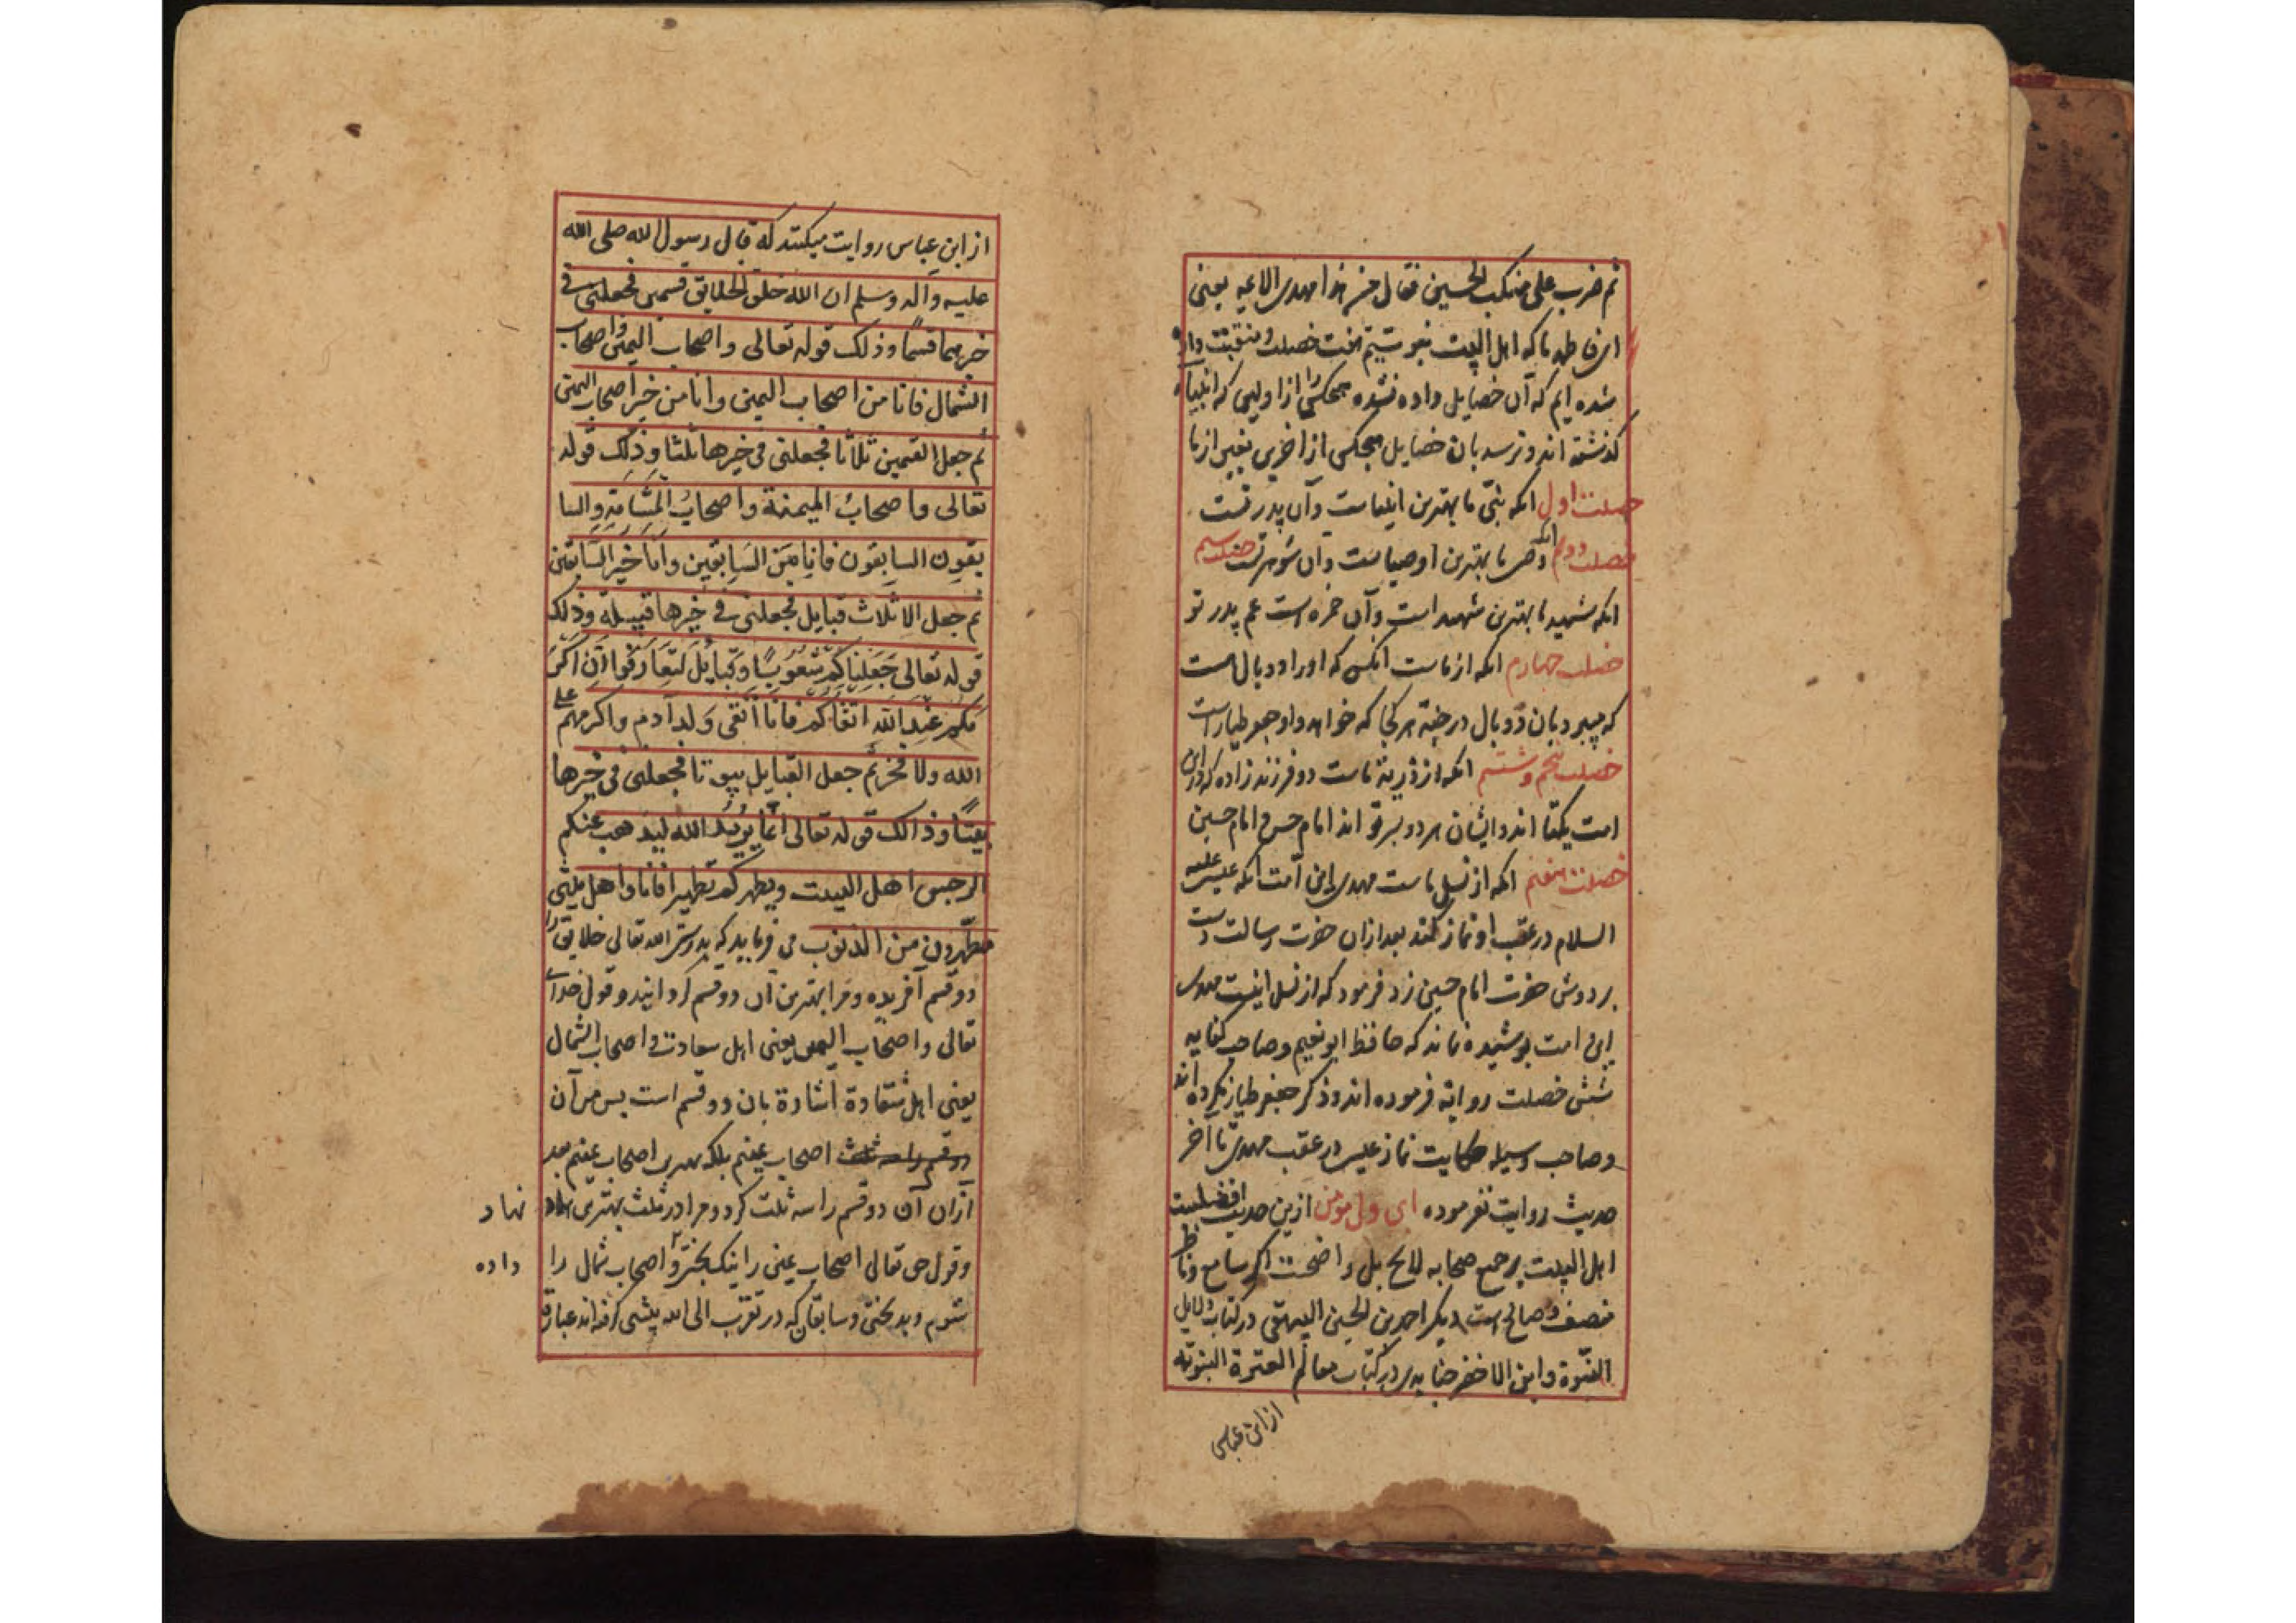 ثم ضرب علی منکب الحسین فقال من هذا مهدی الامة یعنی
ای فاطمه ما که اهل البیت نبوتیم هفت خصلت و منقبت داده
شده ایم که آن خصایل داده نشده هیچکس را از اولین که انبیاء
گذشته اند و نرسد بان خصایل هیچکس از آخرین بغیر از ما
خصلت اول انکه نبی ما بهترین انبیاست و آن پدر تست
خصلت دویم انکه وصی ما بهترین اوصیاست و آن شوهر تست خصلت سیم
انکه شهید ما بهترین شهداست و آن حمزه است عم پدر تو
خصلت چهارم انکه از ماست انکس که او را دو بال است
که میپرد بان دو بال در جنة هر کجا که خواهد و او جعفر طیار است
خصلت پنجم و ششم انکه از ذریة ماست دو فرزند زاده که در این
امت یکتا اند و ایشان هر دو پسر تو اند امام حسن و امام حسین
خصلت هفتم انکه از نسل ماست مهدی این امت انکه عیسی علیه
السلام در عقب او نماز کند بعد از ان حضرت رسالت دست
بر دوش حضرت امام حسین زد فرمود که از نسل اینست مهدی
این امت پوشیده نماند که حافظ ابو نعیم و صاحب کفایه
شش خصلت روایة فرموده اند و ذکر جعفر طیار نکرده اند
و صاحب وسیله حکایت نماز عیسی در عقب مهدی تا آخر
حدیث روایت نفرموده ای ولی مومن ازین حدیث افضلیت
اهل البیت بر جمیع صحابه لایح بل واضحست اگر سامع و ناظر
منصف و صالح است دیگر احمد بن الحسین البیهقی در کتاب دلایل
النبوة و ابن الاخضر جنابدی در کتاب معالم العترة النبویه
از ابن عباس
از ابن عباس روایت میکنند که قال رسول الله صلی الله
علیه و آله وسلم ان الله خلق الخلایق قسمین فجعلنی فی
خیرهما قسمًا وذلک قوله تعالی واصحاب الیمین واصحاب
الشمال فانا من اصحاب الیمین وانا من خیر اصحاب الیمین
ثم جعل القسمین ثلاثا فجعلنی فی خیرها ثلثا وذلک قوله
تعالی فاصحابُ المیمنة واصحابُ المَشَامَةِ والسا
بقون السابقون فانا مِنَ السَابقین وَانَا خَیر السَّابقین
ثم جعل الاثلاث قبایل فجعلنی فی خیرها قبیلة وذلک
قوله تعالی جَعَلناکم شُعُوبًا وَقَبایلَ لتعَارَفوا اَنَّ اَکرَ
مَکُم عِندَ الله اتقاکم فانا اَتقی وَلد آدم واکرمهم علی
الله ولا فخر ثم جعل القبایل بیوتا فجعلنی فی خیرها
بیتًا وذالک قوله تعالی انّما یُریدُ الله لیذهب عنکم
الرجس اهل البیت ویطهرکم تطهیرا فانا واهل بیتی
مطهّرون من الذنوب می فرماید که بدرستی الله تعالی خلایق را
دو قسم آفریده و مرا بهترین آن دو قسم گردانید و قول خدای
تعالی واصحاب الیمین یعنی اهل سعادت و اصحاب الشمال
یعنی اهل شقاوة اشارة بان دو قسم است پس من از
دو قسم را سه ثلث اصحاب یمینم بلکه بهترین اصحاب یمینم بعد
ازان آن دو قسم را سه ثلث کرد و مرا در ثلث بهترین نهاد
و قول حق تعالی اصحاب یمین را نیک بختی و اصحاب شمال را داده
شوم و بدبختی و سابقان که در تقرب الی الله پیشی گرفته اند عبارة